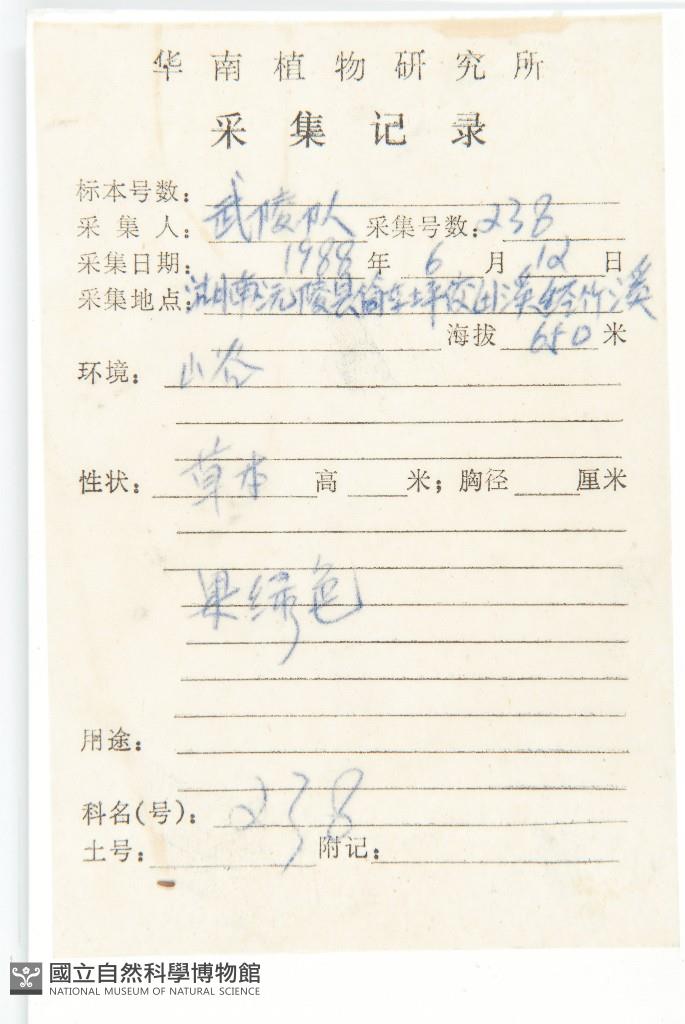 华南植物研究所
采集记录
标本号数：
采集人：武陵队 采集号数：238
采集日期：1988年6月12日
采集地点：湖南沅陵县 坪 溪 竹溪
海拔650米
环境：山谷
性状：草本 高 米；胸径 厘米
果绿色
用途：
科名(号)：238
土号： 附记：
國立自然科學博物館
NATIONAL MUSEUM OF NATURAL SCIENCE